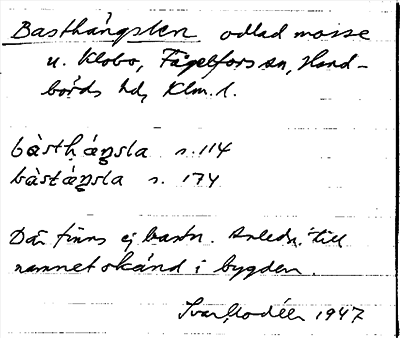 Basthängslen odlad mosse
u. Klobo, Fågelfors sn, Hand-
börds hd, Klm. l.
bàsthäŋsla s. 114
bàstäŋsla s. 174
Där finns ej bastu. Anledn. till
namnet okänd i bygden.
Ivar Modéer 1947